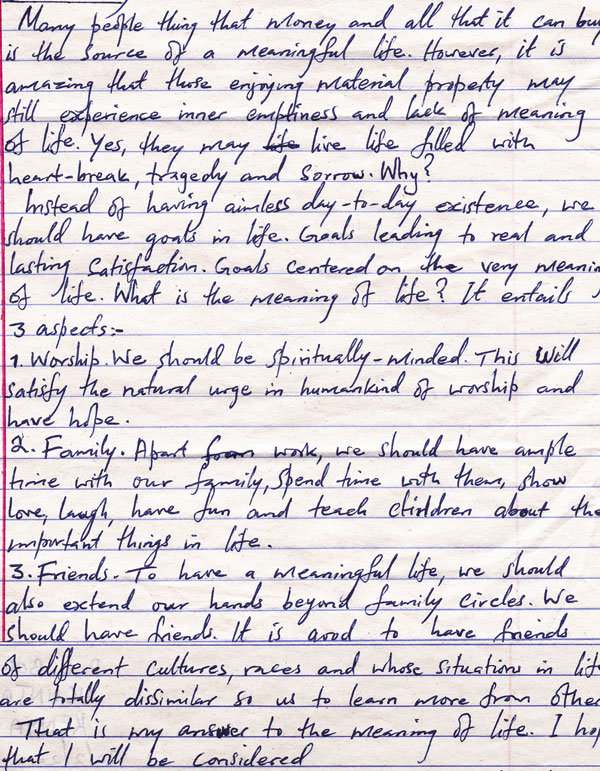 Many people thing that money and all that it can buy
is the source of a meaningful life. However, it is
amazing that those enjoying material property may
still experience inner emptiness and lack of meaning
of life. Yes, they may life live life filled with
heart-break, tragedy and sorrow. Why?
Instead of having aimless day-to-day existence, we
should have goals in life. Goals leading to real and
lasting satisfaction. Goals centered on the very meanin
of life. What is the meaning of life? It entails
3 aspects:-
1. Worship. We should be spiritually-minded. This will
satisfy the natural urge in humankind of worship and
have hope.
2. Family. Apart from work, we should have ample
time with our family, spend time with them, show
love, laugh, have fun and teach children about the
important things in life.
3. Friends. To have a meaningful life, we should
also extend our hands beyond family circles. We
should have friends. It is good to have friends
of different cultures, races and whose situations in life
are totally dissimilar so us to learn more from other
That is my answer to the meaning of life. I hop
that I will be considered